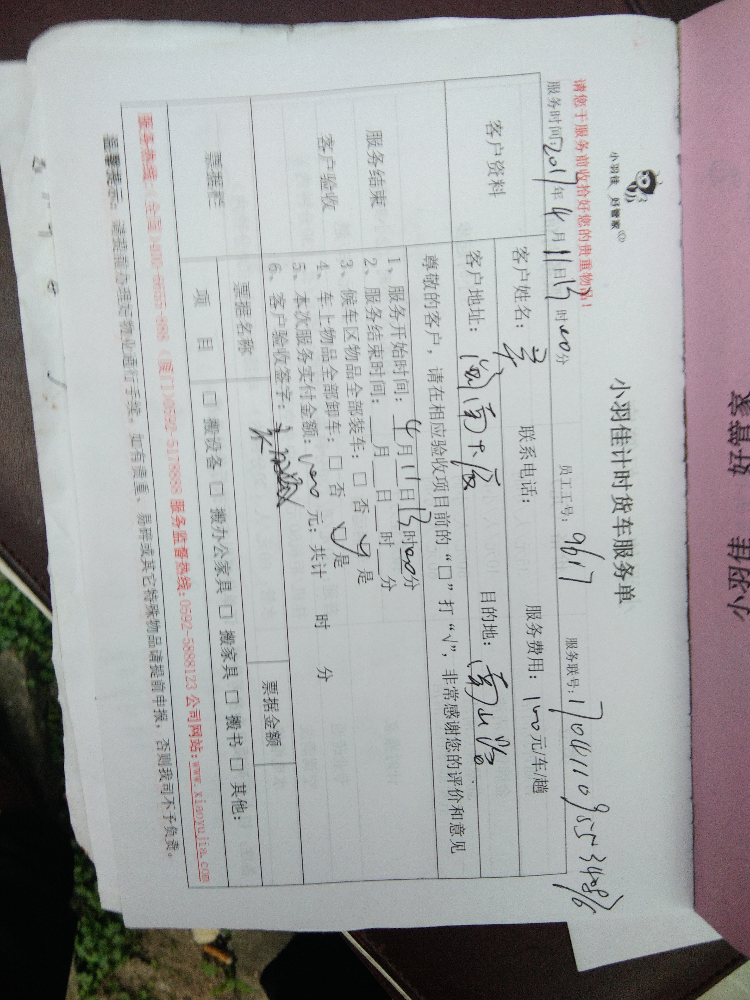 好管家
小羽佳
小羽佳 好管家
小羽佳计时货车服务单
请您于服务前收拾好您的贵重物品!
员工工号: 9617
服务时间: 2017年4月11日13时00分
客户资料
客户姓名:
联系电话:
服务费用: 100元/车/趟
客户地址: 闽南大厦
目的地: 南山路
尊敬的客户,请在相应验收项目前的“□”打“√”,非常感谢您的评价和意见
服务结束
客户验收
1、服务开始时间: 4月11日13时00分
2、服务结束时间: 月 日 时 分
3、候车区物品全部装车: □ 否 ☑ 是
4、车上物品全部卸车: □ 否 ☑ 是
5、本次服务实付金额: 100元; 共计 时 分
6、客户验收签字:
票据栏
票据名称
票据金额
项 目
□ 搬设备 □ 搬办公家具 □ 搬家具 □ 搬书 □ 其他:
服务监督热线:0592-5888123 公司网站:www.xiaoyujia.com
温馨提示: 请提前办理好物业通行手续, 如有贵重、易碎或其它特殊物品请提前申报, 否则我司不予负责。